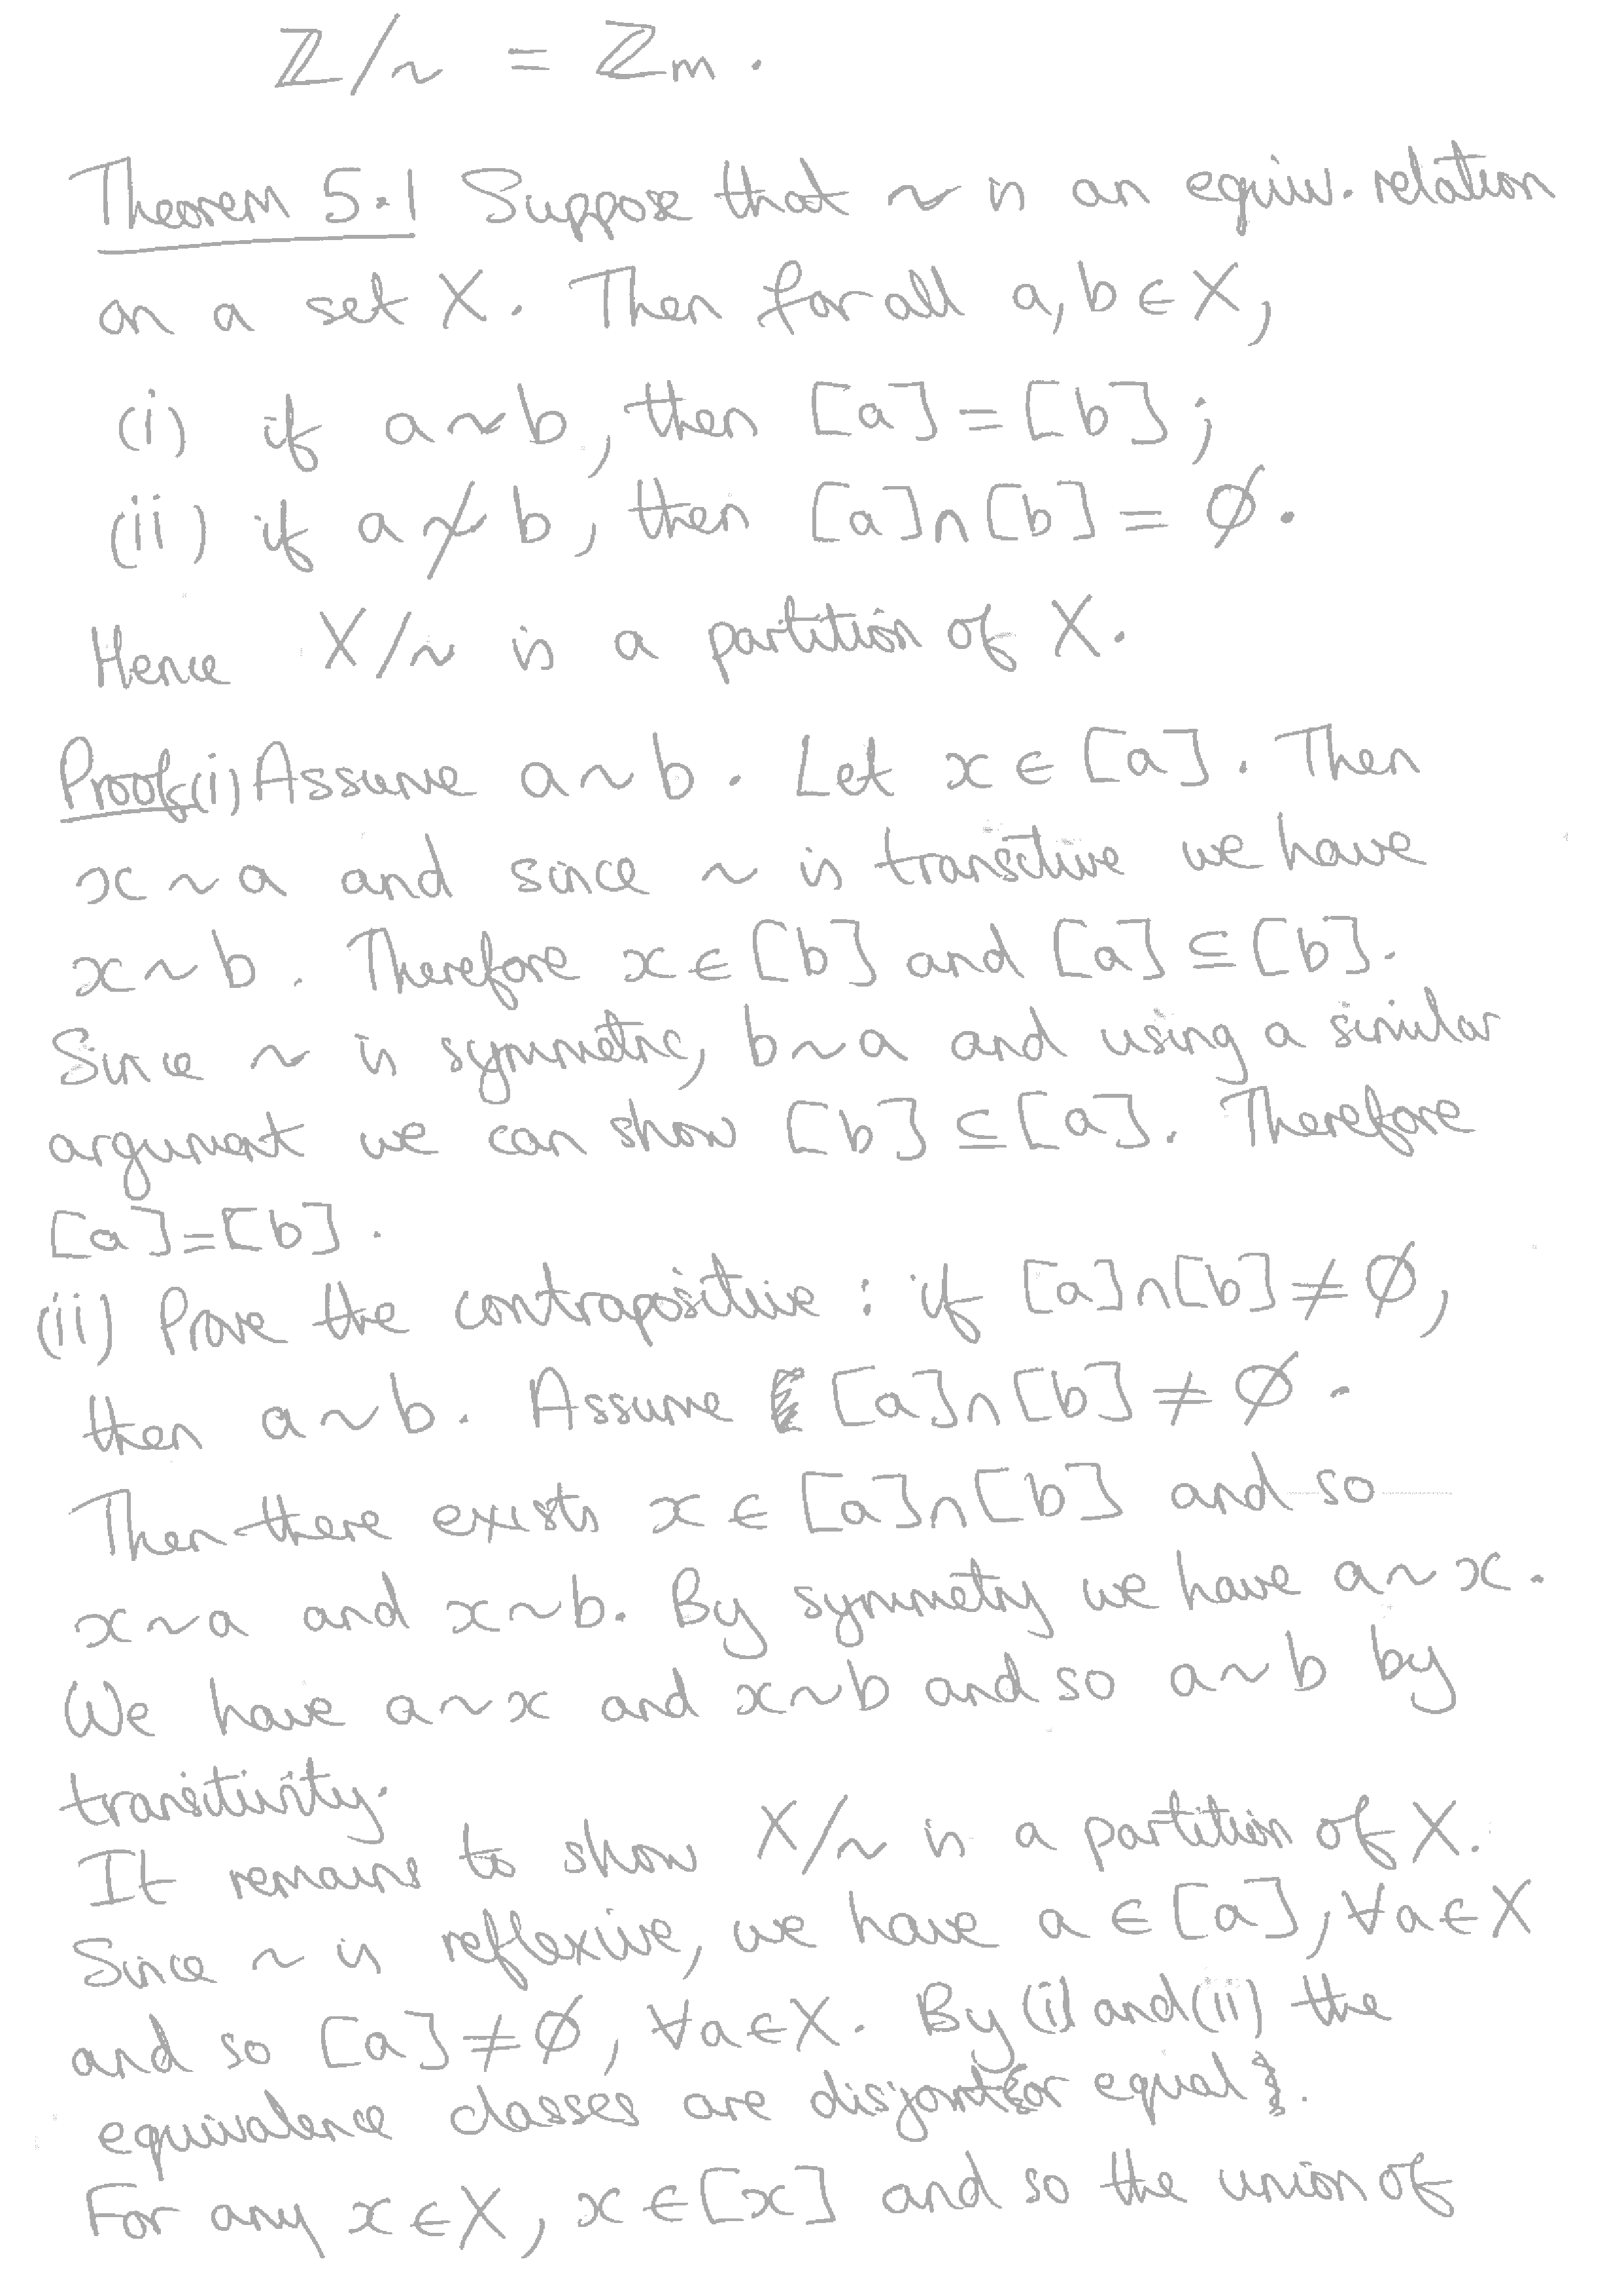 ℤ/~ = ℤm.
Theorem 5.1 Suppose that ~ is an equiv. relation
on a set X. Then for all a, b ∈ X,
(i) if a ~ b, then [a] = [b];
(ii) if a ≁ b, then [a] ∩ [b] = ∅.
Hence X/~ is a partition of X.
Proof (i) Assume a ~ b. Let x ∈ [a]. Then
x ~ a and since ~ is transitive we have
x ~ b. Therefore x ∈ [b] and [a] ⊆ [b].
Since ~ is symmetric, b ~ a and using a similar
argument we can show [b] ⊆ [a]. Therefore
[a] = [b].
(ii) Prove the contrapositive : if [a] ∩ [b] ≠ ∅,
then a ~ b. Assume [a] ∩ [b] ≠ ∅.
Then there exists x ∈ [a] ∩ [b] and so
x ~ a and x ~ b. By symmetry we have a ~ x.
We have a ~ x and x ~ b and so a ~ b by
transitivity.
It remains to show X/~ is a partition of X.
Since ~ is reflexive, we have a ∈ [a], ∀a ∈ X
and so [a] ≠ ∅, ∀a ∈ X. By (i) and (ii) the
equivalence classes are disjoint {or equal}.
For any x ∈ X, x ∈ [x] and so the union of